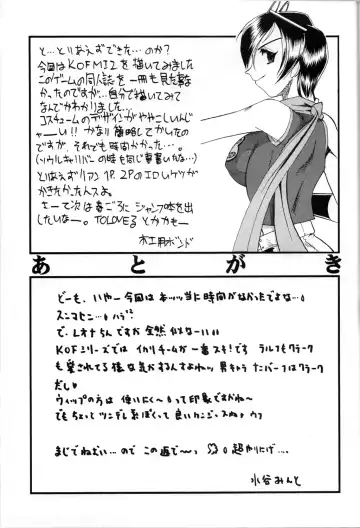 と…とりあえずできた…のか?
今回はKOFMI2を描いてみました
このゲームの同人誌を一冊も見た事な
かったのですが…自分で描いてみて
なんでかわかりました…
コスチュームのデザインがややこしいんじ
ゃーい!!かなり簡略してかいたの
ですが、それでも時間かかった…
(ソウルキャリバーの時も同じ事書いたな…)
とりあえずリアン1P、2Pのエロいケツが
かきたかったんスよ。
さーて次は春ごろにジャンプ本を出
したいなー。TOLOVEるとかもー
木工用ボンド
あとがき
どーも、いやー今回はあッッ当に時間がなかったでよな…
スンマセン…
で、レオナちんですが全然似な〜い
KOFシリーズではイカリチームが一番スキ!です ラルフもクラーク
も愛されてる様な気がするんすよねッ 男キャラナンバー1はクラーク
だし
ウィップの方は使いにく〜って印象ですかね〜
でもちょっとツンデレ系ぽくって良いカンジ
まじでねむい…ので この辺で〜っ 超やりにげ…
水谷みんと